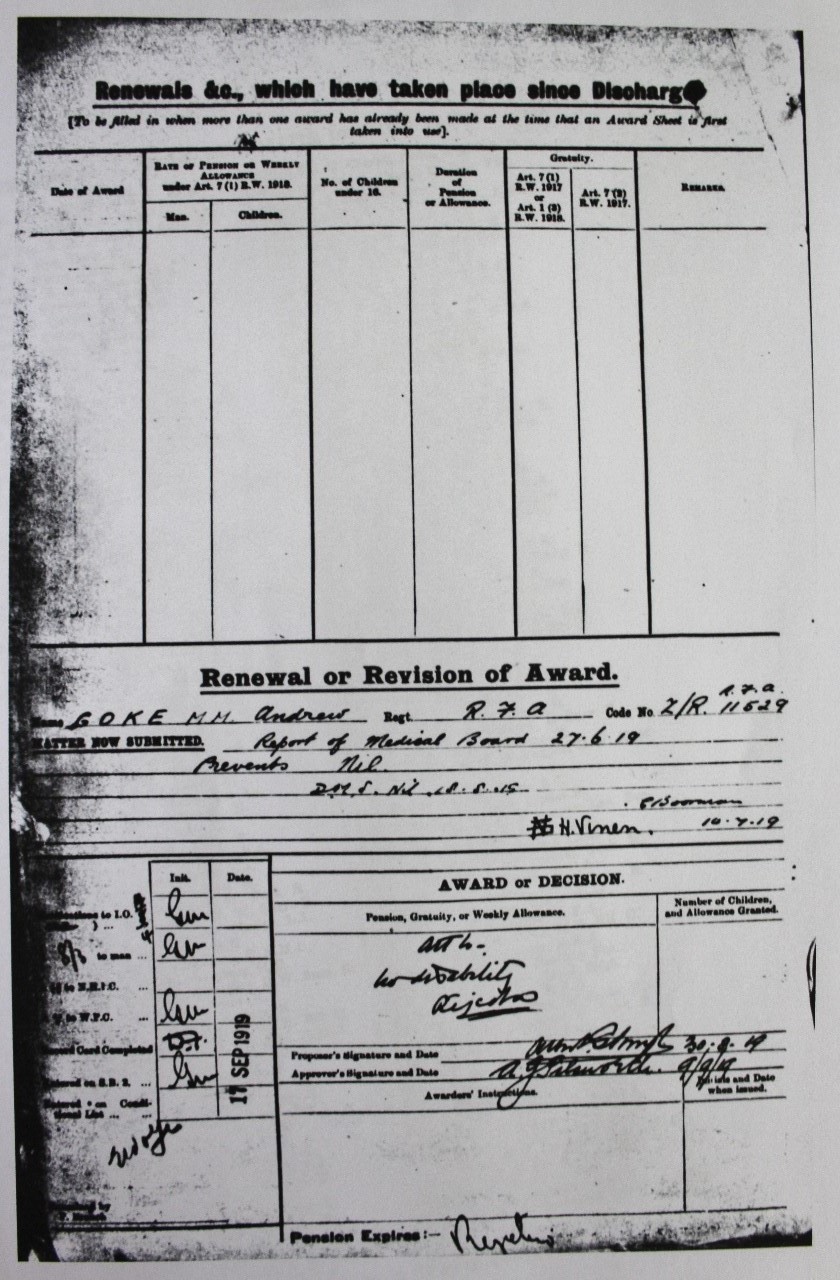 Renewals &c., which have taken place since Discharge
[To be filled in when more than one award has already been made at the time that an Award Sheet is first
taken into use].
Date of Award
RATE OF PENSION OR WEEKLY
ALLOWANCE
under Art. 7 (1) R.W. 1918.
Man.
Children.
No. of Children
under 16.
Duration
of
Pension
or Allowance.
Gratuity.
Art. 7 (1)
R.W. 1917
or
Art. 1 (3)
R.W. 1918.
Art. 7 (2)
R.W. 1917.
REMARKS.
Renewal or Revision of Award.
R.F.A.
Name COKE Andrew Regt. R.F.A Code No. Z/R. 11529
MATTER NOW SUBMITTED. Report of Medical Board 27.6.19
Prevents Nil.
Nil
H. Vinen. 10.7.19
Init.
Date.
to I.O.
to man ...
to N.H.I.C.
to W.P.C. ...
Card Completed
Entered on S.B. 2. ...
Entered on Condi-
tional List ...
17 SEP 1919
AWARD or DECISION.
Pension, Gratuity, or Weekly Allowance.
Number of Children,
and Allowance Granted.
no disability
Rejected
Proposer's Signature and Date
Approver's Signature and Date 9/9/19
Awarders' Instructions.
Initials and Date
when issued.
Pension Expires:—